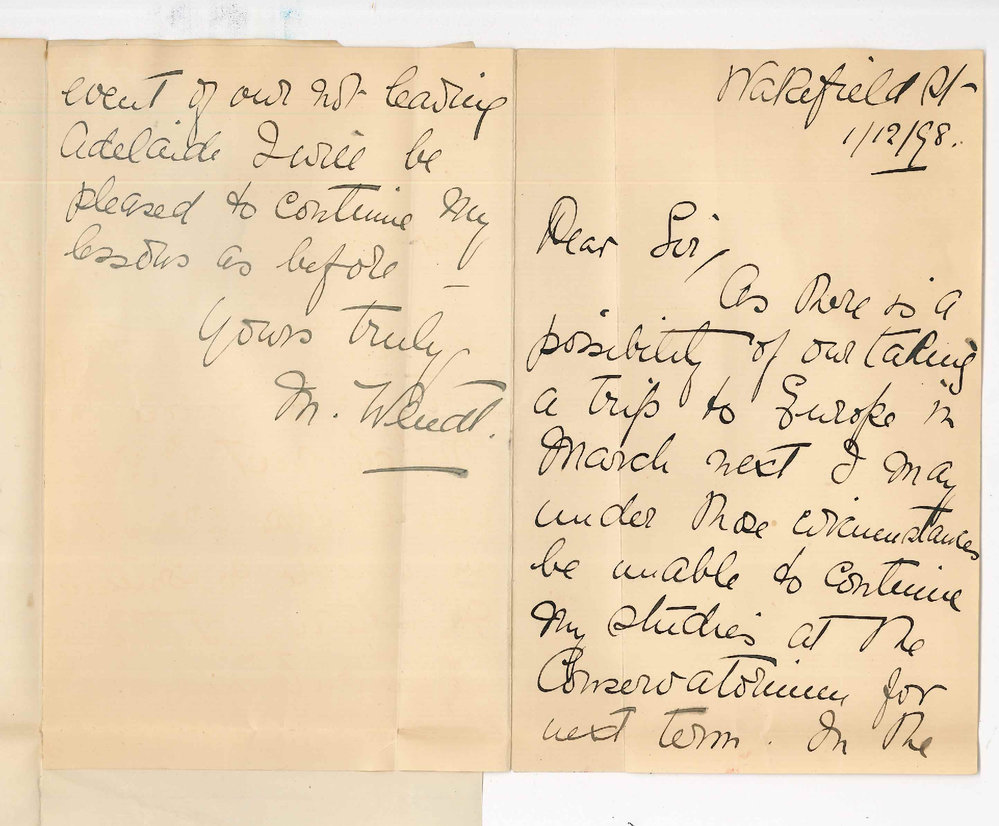 Wakefield St
1/12/98.
Dear Sir,
As there is a
possibility of our taking
a trip to Europe in
March next I may
under those circumstances
be unable to continue
my studies at the
Conservatorium for
next term. In the
event of our not leaving
Adelaide I will be
pleased to continue my
lessons as before –
Yours truly,
M. Wendt.